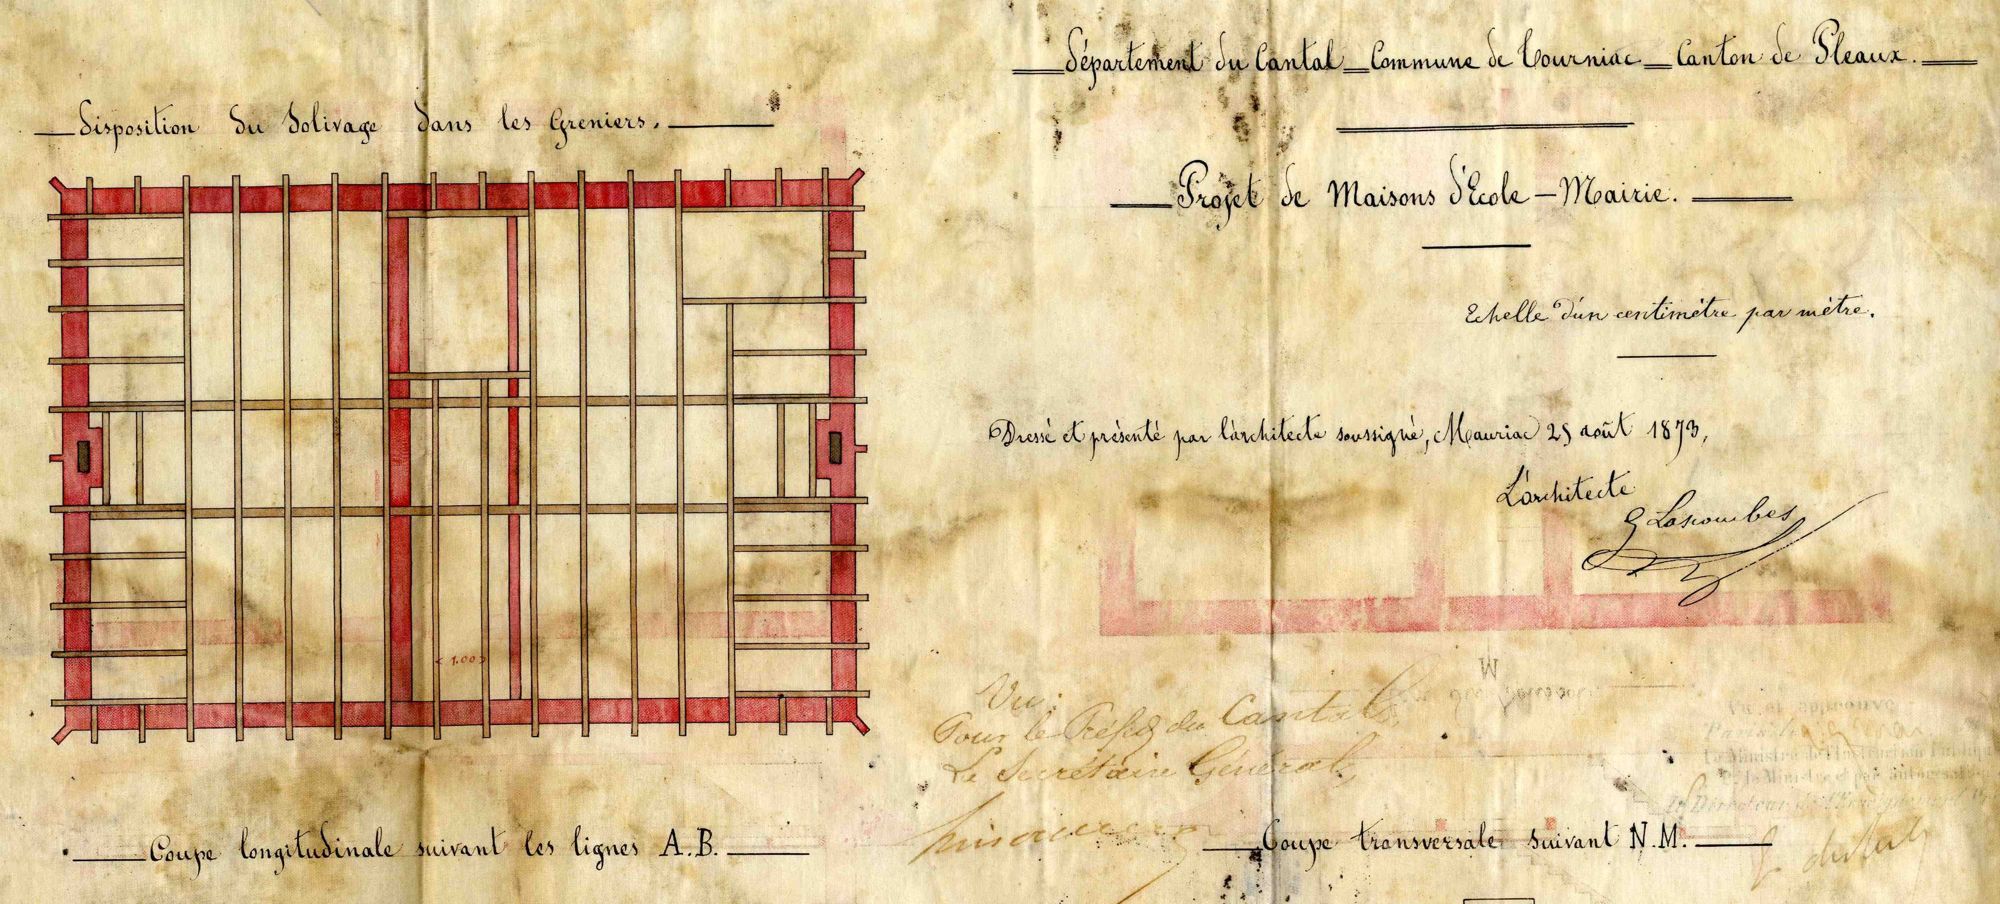 Département du Cantal _ Commune de Tourniac _ Canton de Pleaux.
Disposition du Solivage dans les Greniers.
Projet de Maisons d'Ecole – Mairie.
Echelle d'un centimètre par mètre.
Dressé et présenté par l'architecte soussigné, Mauriac 25 août 1873,
L'architecte
Lascombes
1.00
Vu:
Pour le Préfet du Cantal
Le Secrétaire Général,
Vu et approuvé
Le Ministre de l'Instruction
Coupe longitudinale suivant les lignes A.B.
Coupe transversale suivant N.M.